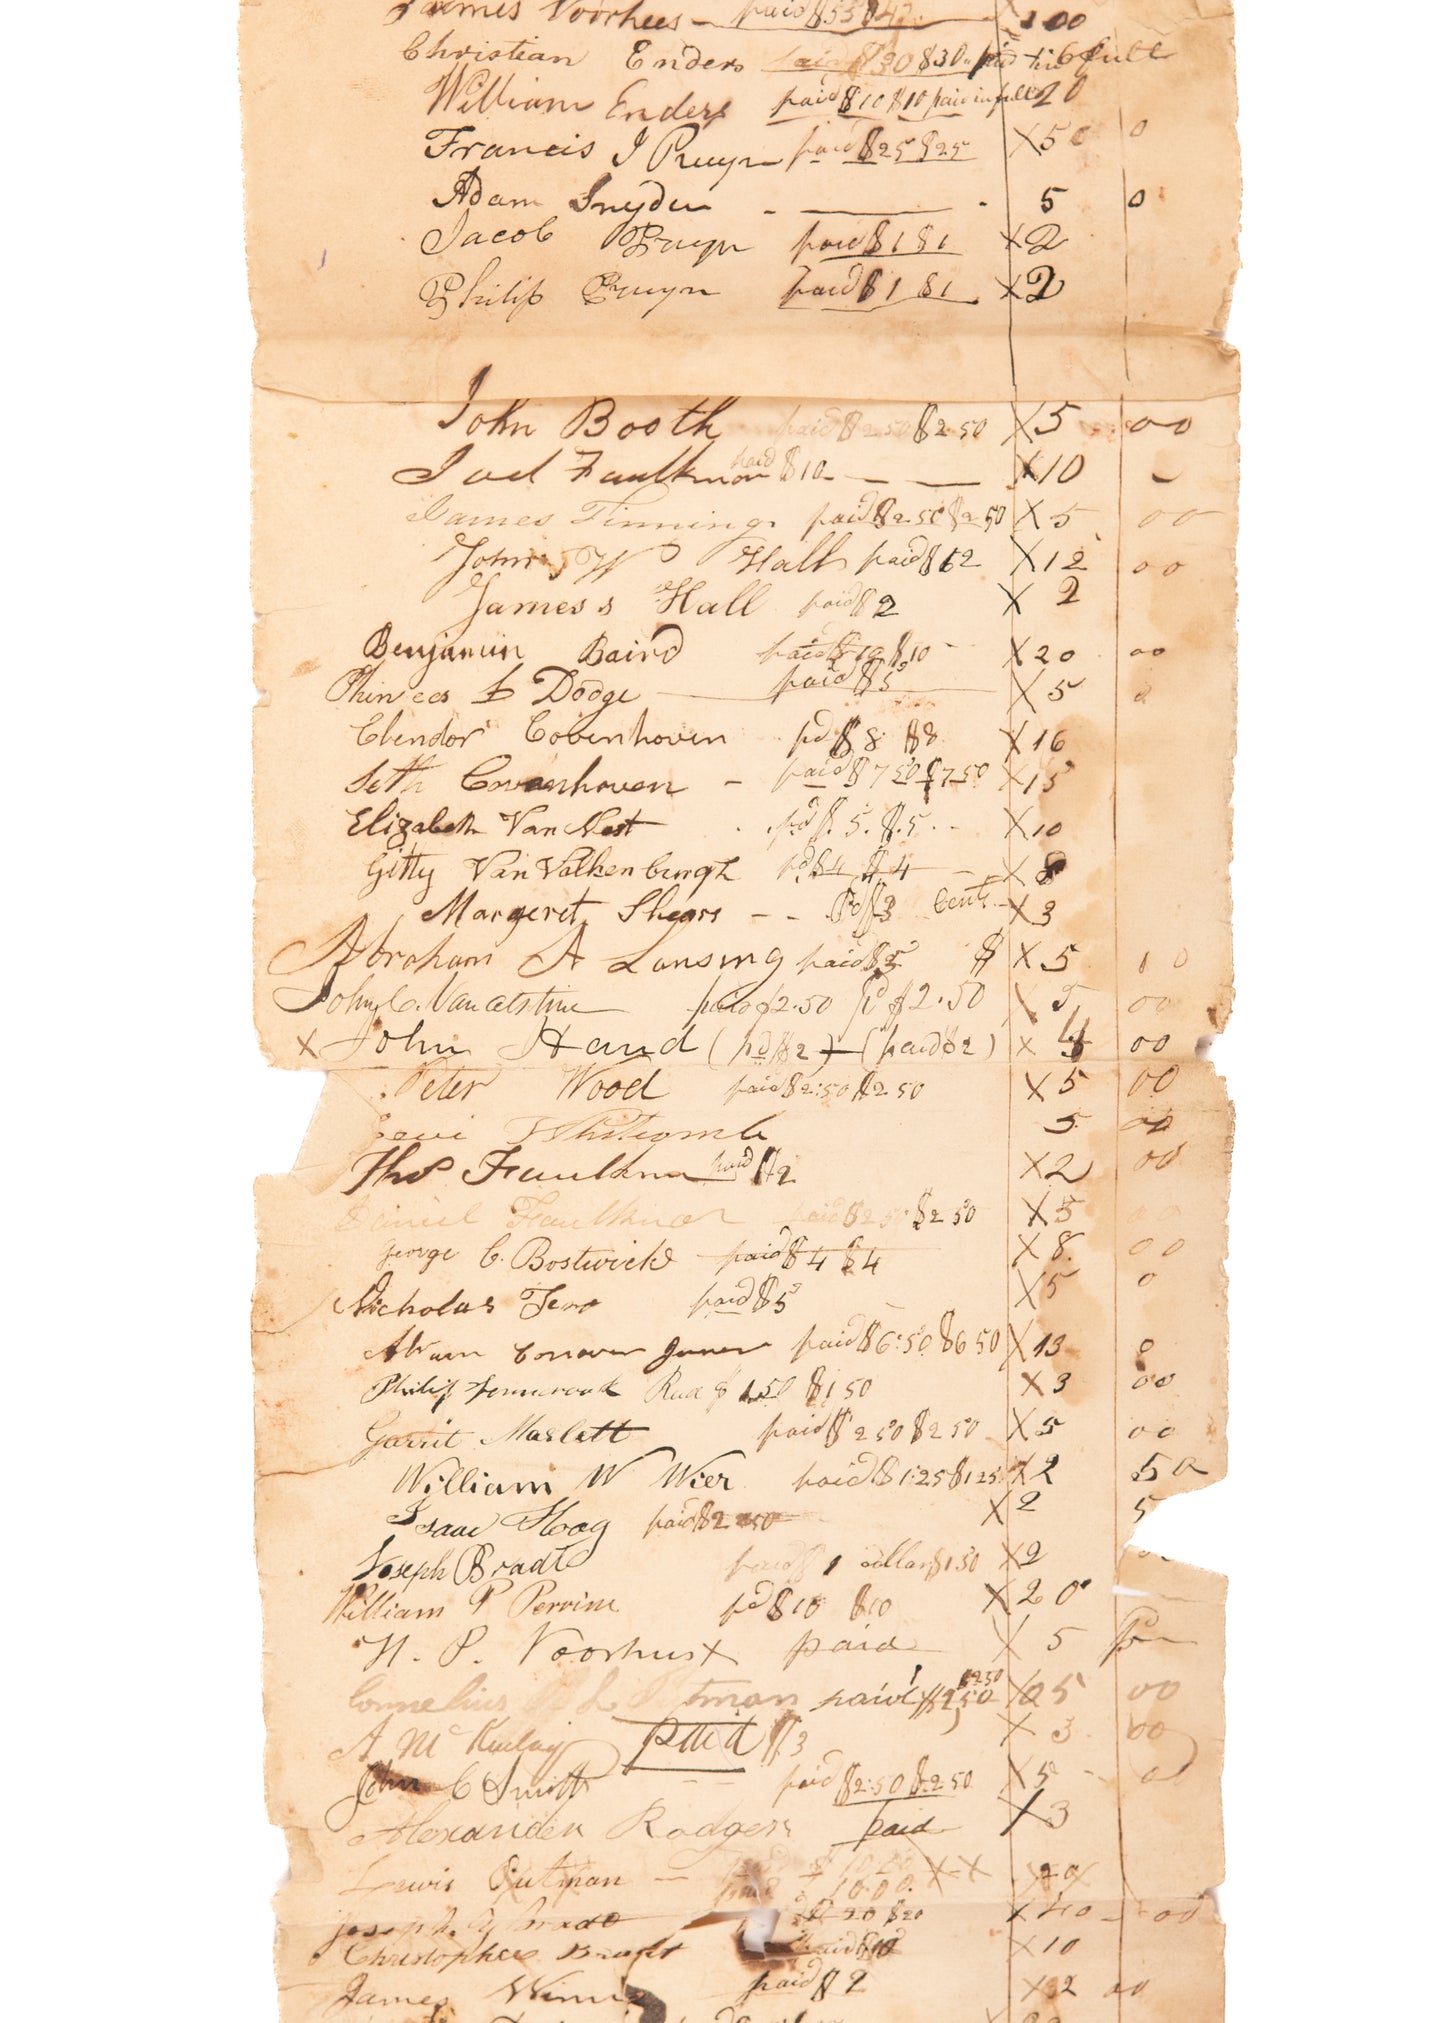 James Voorhees - paid $55 $45 X 100
Christian Enders paid $30 $30 paid in full
William Enders paid $10 $10 paid in full 20
Francis I Pruyn paid $25 $25 X50 0
Adam Snyder 5 0
Jacob Pruyn paid $1 $1 X2
Philip Pruyn paid $1 $1 X2
John Booth paid $2 50 $2 50 X5 00
Joel Faulknor paid $10 X10
James Tinning paid $2 50 $2 50 X5 00
John W Hall paid $12 X12 00
James s Hall paid $2 X 2
Benjamin Baird paid $10 $10 X20 00
Phinees L Dodge paid $5 X5 0
Clendor Covenhoven pd $8 $8 X16
Seth Covenhoven - paid $7 50 $7 50 X15
Elizabeth Van Nest pd $5. $.5 X10
Gitty Van Valkenburgh pd $4 $4 X8
Margeret Shears - - Pd $3 Cents X3
Abraham A Lansing paid $5 $ X5 10
John C. Van alstine paid $2.50 pd $2.50 X5 00
X John Hand (pd $2) (paid $2) X 4 00
Peter Wood paid $2:50 $2 50 X5 00
Levi Whitcomb 5 00
Thos Faulknor paid $2 X2 00
Daniel Faulknor paid $2 50 $2 50 X5 00
George C. Bostwick paid $4 $4 X8 00
Nicholas Fero paid $5 X5 0
Abram Conover Juner paid $6:50 $6 50 X13 0
Philip $1.50 $1 50 X3 00
Garrit Maslett paid $2 50 $2 50 X5 00
William W Wier paid $1:25 $1 25 X2 50
Isaac Hoag paid $2 50 X2 5
Joseph Bradt paid $1 dollar $1 50 X2
William P Perrine pd $10 $10 X20
H. P. Voorhus X paid X 5 pd
Cornelius Putman paid $2 50 $2 50 X 5 00
A Mc Kinlay paid $3 X 3 00
John C Smith paid $2:50 $2 50 X5 00
Alexander Rodgers paid X3
Lewis Putman - paid $10.00 X X 20
paid $10.00.
Joseph Bradt $20 $20 X40 - 00
Christopher Bradt paid $10 X10
James Winnie paid $2 X2 00